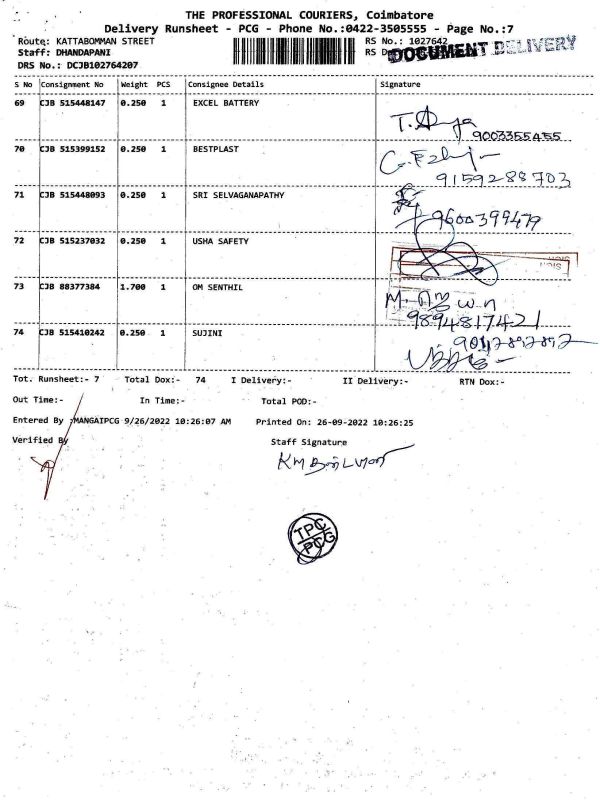 THE PROFESSIONAL COURIERS, Coimbatore
Delivery Runsheet - PCG - Phone No.:0422-3505555 - Page No.:7
Route: KATTABOMMAN STREET RS No.: 1027642
Staff: DHANDAPANI RS D DOCUMENT DELIVERY
DRS No.: DCJB102764207
S No Consignment No Weight PCS Consignee Details Signature
69 CJB 515448147 0.250 1 EXCEL BATTERY
9003355455
70 CJB 515399152 0.250 1 BESTPLAST
9159288703
71 CJB 515448093 0.250 1 SRI SELVAGANAPATHY
9600399479
72 CJB 515237032 0.250 1 USHA SAFETY
73 CJB 88377384 1.700 1 OM SENTHIL
9894817421
74 CJB 515410242 0.250 1 SUJINI
Tot. Runsheet:- 7 Total Dox:- 74 I Delivery:- II Delivery:- RTN Dox:-
Out Time:- In Time:- Total POD:-
Entered By :MANGAIPCG 9/26/2022 10:26:07 AM Printed On: 26-09-2022 10:26:25
Verified By Staff Signature
TPC
PCG